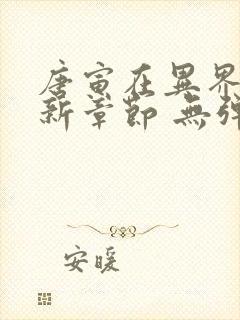 唐寅在異界
新章節 無彈
安暖